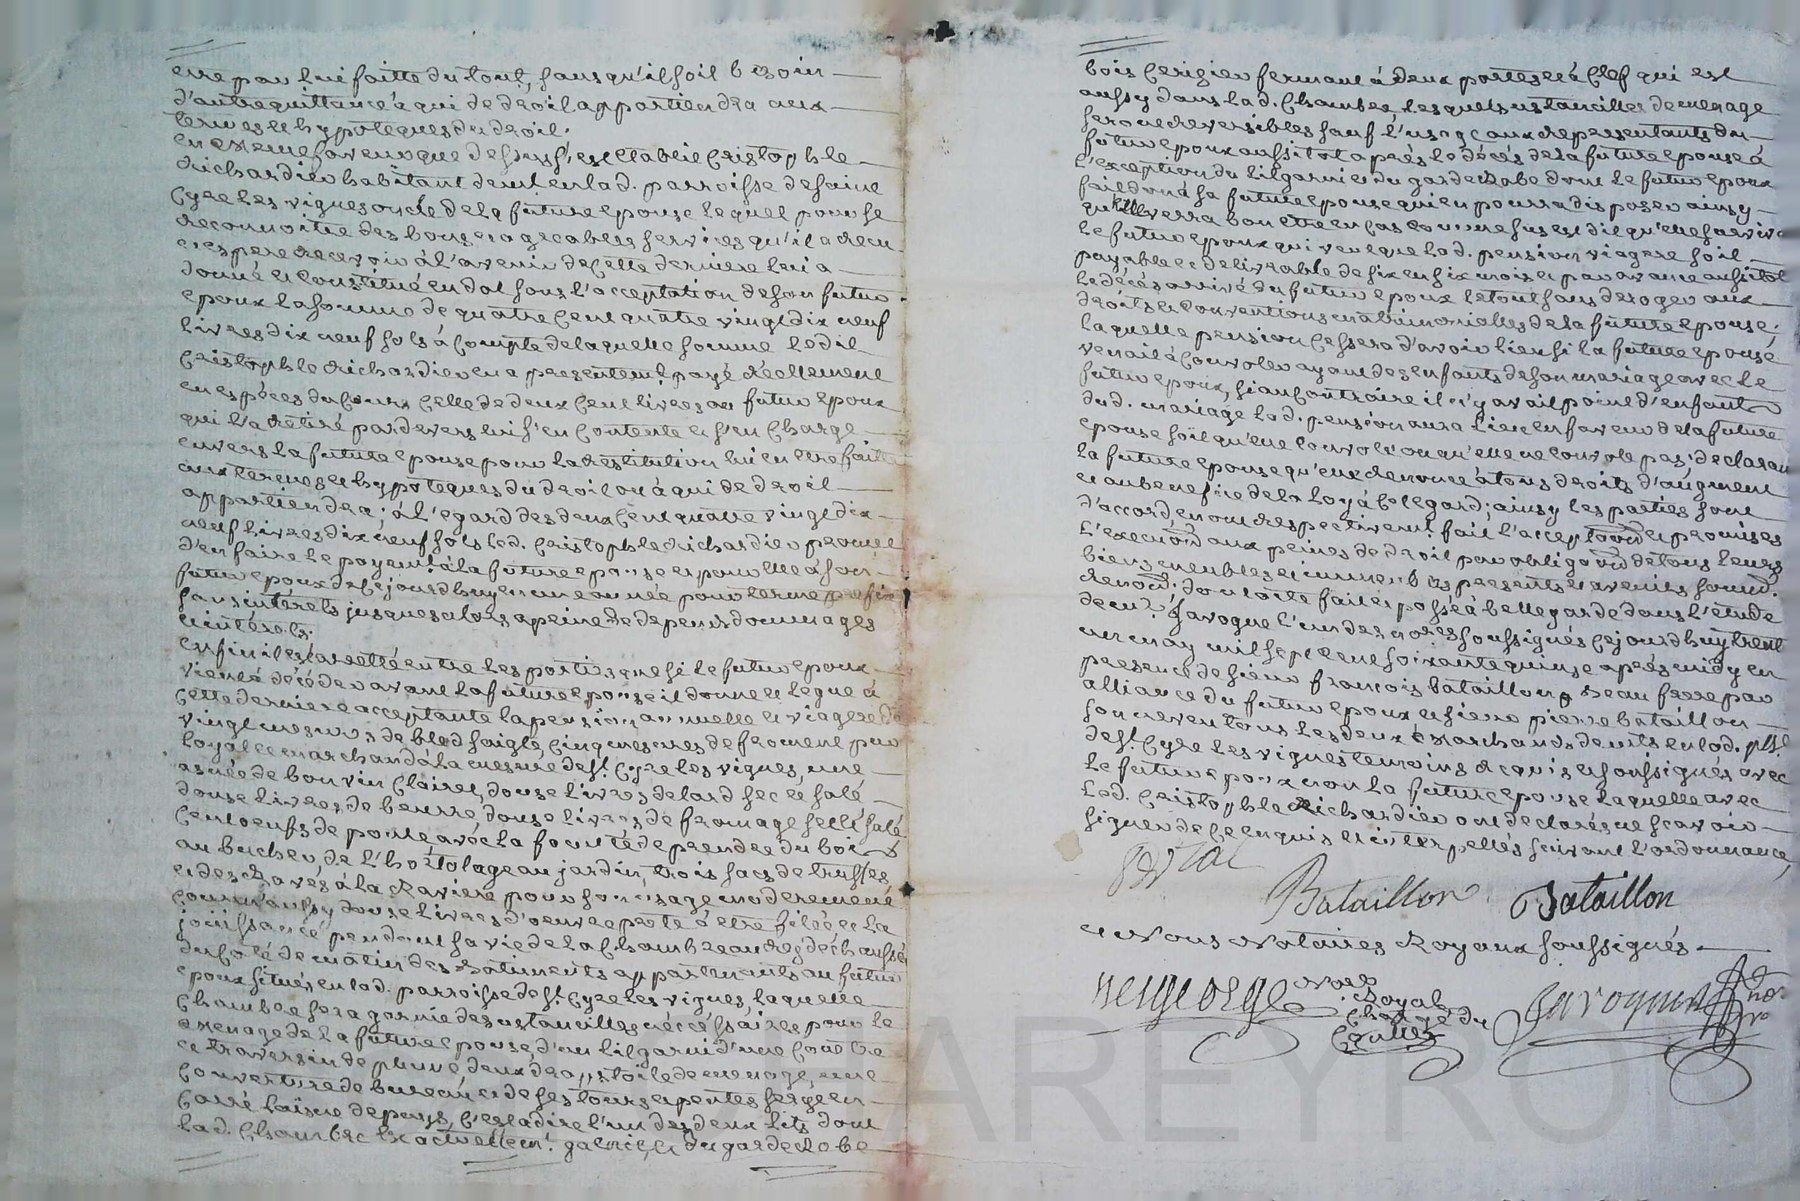 etre par lui faitte du tout, sans qu'il soit besoin
d'autre quittance à qui de droit appartiendra aux
termes et hypoteques du droit.
en extreme faveur que dessus s'est etablie Cristophle
Richardieu habitant demeurant en lad. parroisse de saint
Cyre les vignes oncle de la future epouse lequel pour se
reconnoitre des bons et agreables services qu'il a recu
et espere recevoir à l'avenir de cette derniere lui a
donné et Constitué en dot sous l'acceptation de son futur
epoux la somme de quatre Cent quatre vingt dix neuf
livres dix neuf sols à Compte de laquelle somme led.
Cristophle Richardieu en a presentement payé réellement
en espéces du Cours Celle de deux Cent livres au futur epoux
qui l'a rétiré pardevers lui s'en Contente et s'en Charge
envers la future epouse pour la restitution lui en etre faitte
aux termes et hypoteques du droit ou à qui de droit
appartiendra; à l'egard des deux Cent quatre vingt dix
neuf livres dix neuf sols led. Cristophle Richardieu promet
d'en faire le payement à la future epouse et pour elle à son
futur epoux de Ce jourd'huy en une année pour terme préfix
sans intérets jusques alors, a peine de depens dommages
et intérets.
Enfin il est arretté entre les parties que si le futur epoux
vient à déceder avant la future epouse il donne et legue à
Cette derniere acceptante la pension annuelle et viagere de
vingt mesures de bled seigle, Cinq mesures de froment pur
loyal et marchand à la mesure de st. Cyre les vignes, une
asnée de bon vin Clairet, douse livres de lard sec et salé
douse livres de beurre, douse livres de fromage sellé salé
Cent oeufs de poule avec la faculté de prendre du bois
au bucher, de l'hortolage au jardin, trois sacs de truffes
et des Raves à la Raviere pour son usage moderement
comme aussy douse livres d'oeuvre prete à etre filée et la
joüissance pendant sa vie de la Chambre au rez de Chaussée
du Coté de matin des Batiments appartenants au futur
epoux situés en lad. parroisse de st. Cyre les vignes, laquelle
Chambre sera garnie des ustancilles nécéssaires pour le
menage de la future epouse, d'un lit garni d'une Couttre
et traversin de plume deux draps toile de menage, une
Couverture de bureau et de ses tours et pentes serge en
Carré laisne de pays, C'est à dire l'un des deux lits dont
lad. Chambre est actuellement garnie, et du garderobe
bois Cerisier fermant à deux portes et à Clef qui est
aussy dans lad. Chambre, lesquels ustancilles de menage
seront reversibles sauf l'usage aux representants du
futur epoux aussitot après le décés de la future epouse à
l'exception du lit garni et du garderobe dont le futur epoux
fait don à sa future epouse qui en pourra disposer ainsy
qu'elle verra bon etre en cas Comme susest dit qu'elle survive
le futur epoux qui veut que lad. pension viagere soit
payable et delivrable de six en six mois et par avance aussitot
le décés arrivé du futur epoux le tout sans deroger aux
droits et Conventions matrimonialles de la future epouse;
laquelle pension Cessera d'avoir lieu si la future epouse
venait à Convoler ayant des enfants de son mariage avec le
futur epoux, si au Contraire il n'y avait point d'enfants
dud. mariage lad. pension aura lieu en faveur de la future
epouse soit qu'elle Convole ou qu'elle ne Convole pas; declarant
la future epouse qu'elle renonce à tous droits d'augment
et au benefice de la loy à Ce legard; ainsy les parties sont
d'accord, en ont respectivement fait l'acceptaon et promises
l'execuon aux peines de droit par obligaon de tous leurs
biens meubles et immeubles presents et avenirs soum.
renon. dont acte fait et passé à bellegarde dans l'étude
de me. Javogue l'un des nores. soussignés Cejourd'huy trent
un may mil sept cent soixante quinse après midy en
presence de sieur françois bataillon beau frere par
alliance du futur epoux et sieur pierre bataillon
son neveu tous les deux Marchands demts. en lad. psse.
de st. Cyre les vignes temoins requis et soussignés avec
le futur epoux non la future epouse laquelle avec
led. Cristophle Richardieu ont declarés ne sçavoir
signer de Ce enquis et interpellés suivant l'ordonnance,
Bataillon Bataillon
et Nous Notaires Royaux soussignés
Royal
Chargé du
Javogue
MAREYRON